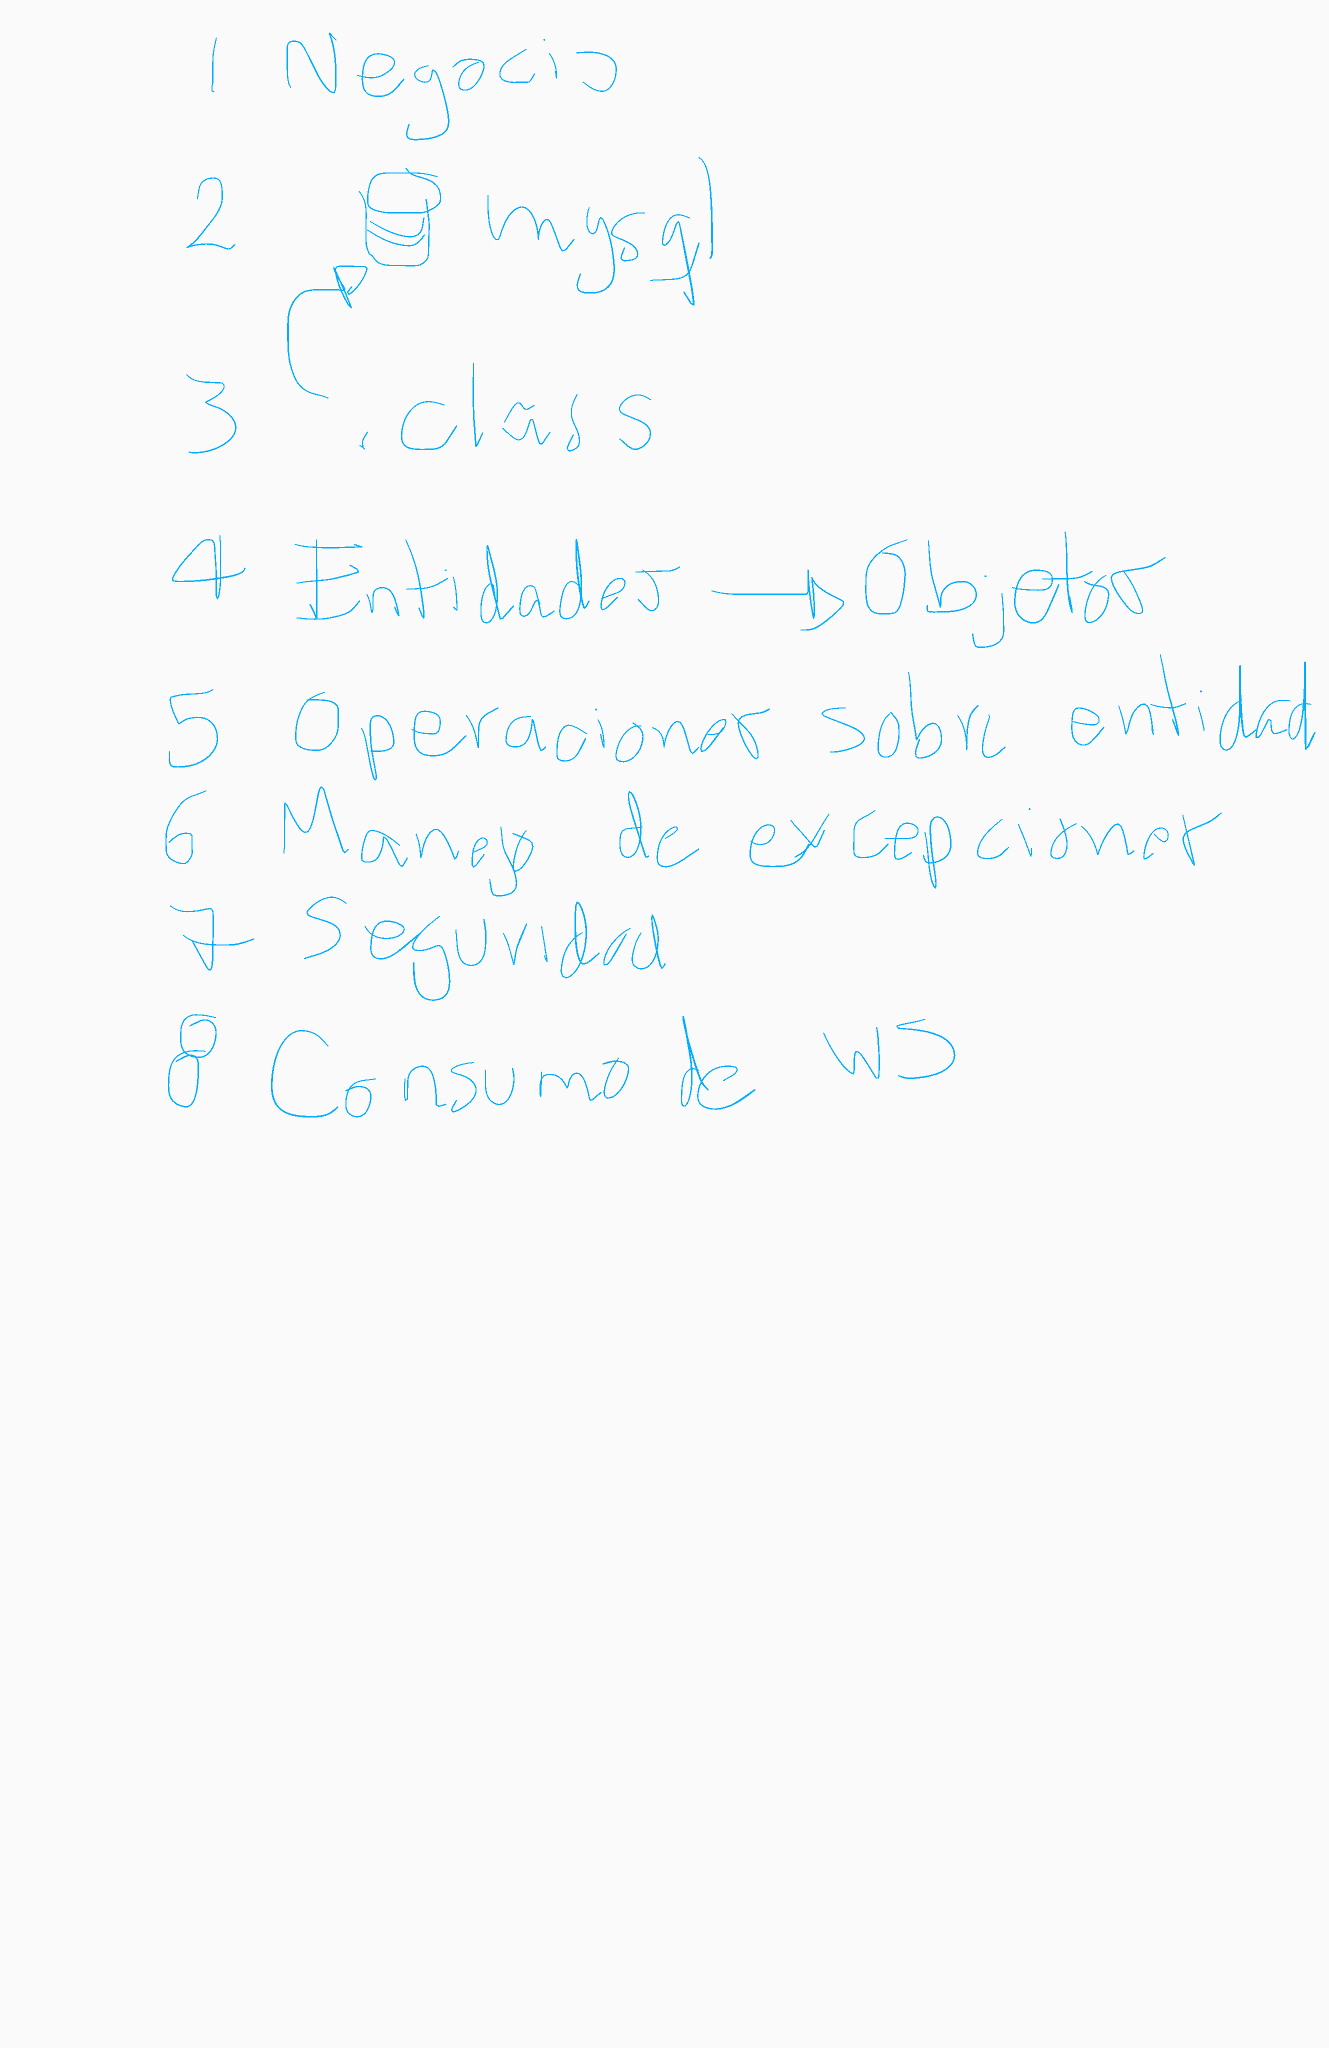 1 Negocio
2 mysql
3 .class
4 Entidades → Objetos
5 Operaciones sobre entidad
6 Manejo de excepciones
7 Seguridad
8 Consumo de WS